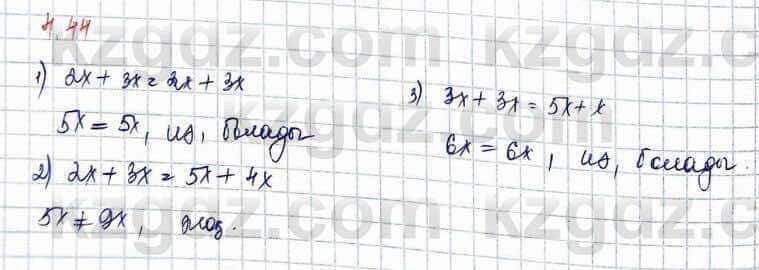 4.44
1) 2x + 3x = 2x + 3x
5x = 5x, иә, болады
2) 2x + 3x = 5x + 4x
5x ≠ 9x, жоқ.
3) 3x + 3x = 5x + x
6x = 6x, иә, болады.
kzgdz.com kzgdz.com
kzgdz.com kzgdz.com
kzgdz.com kzgdz.com